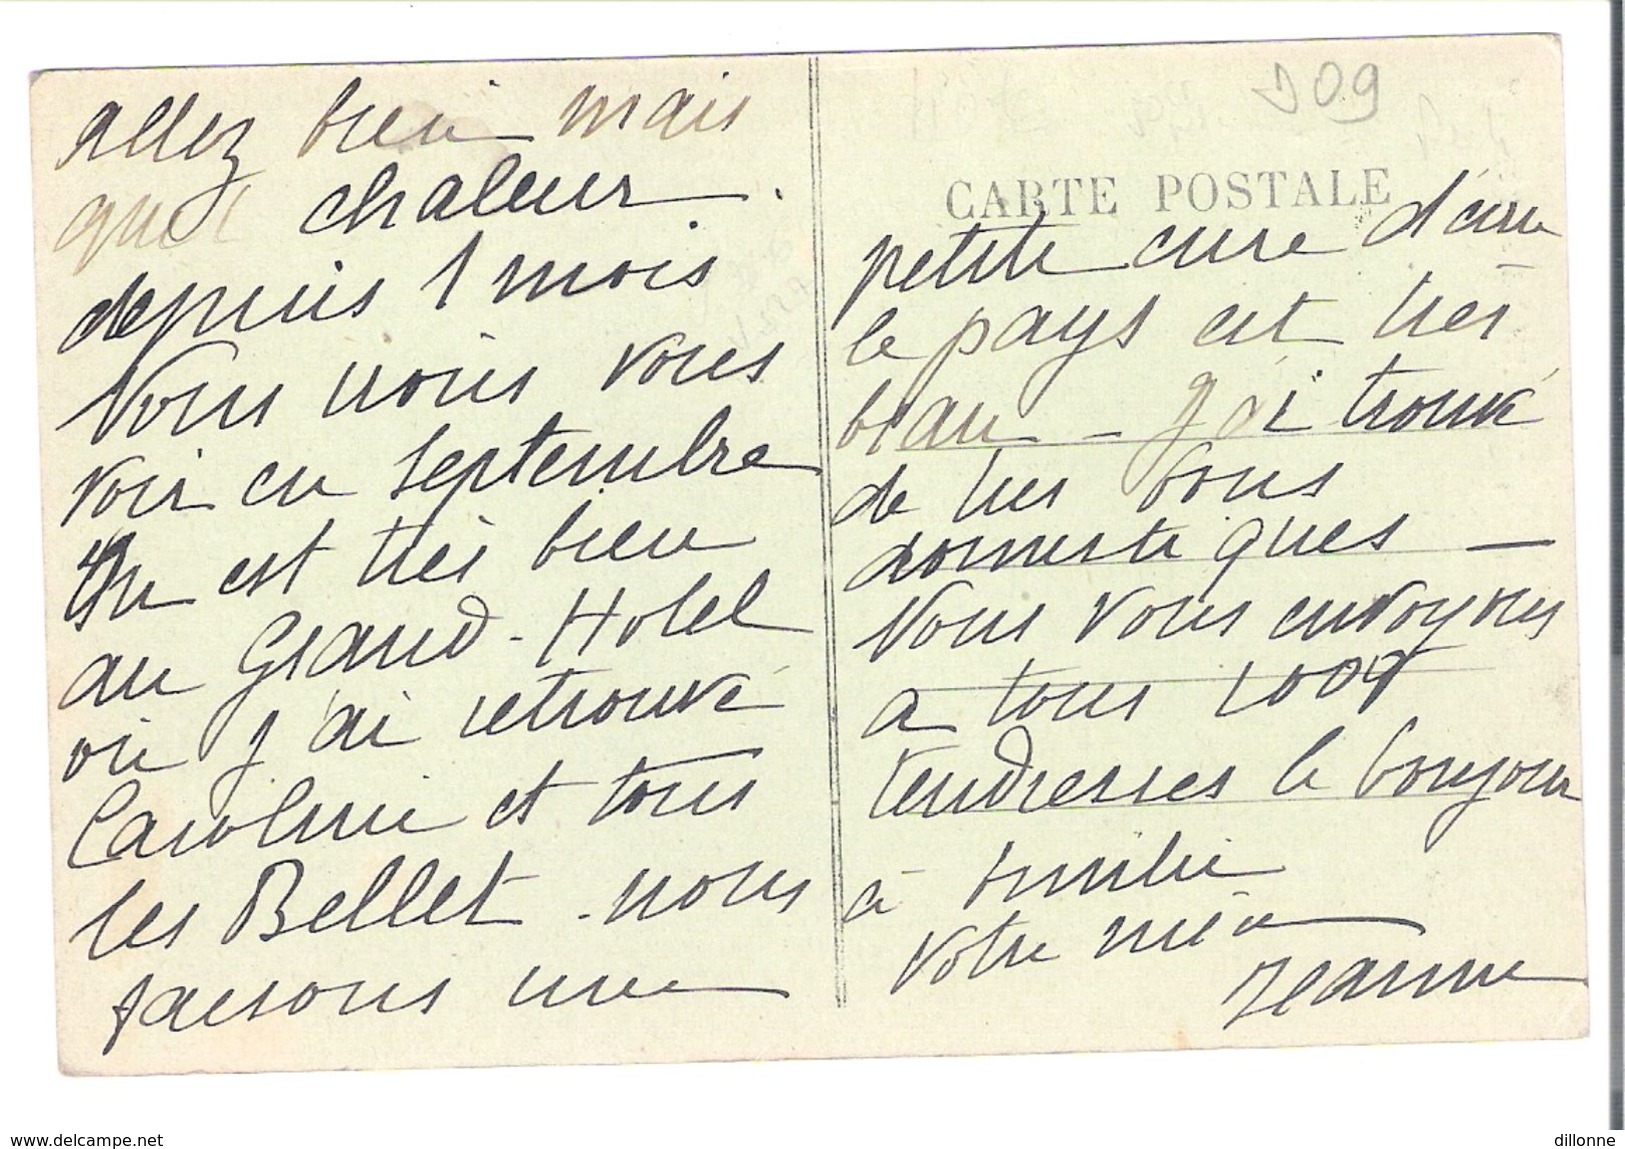 allez bien mais
quel chaleur.
depuis 1 mois
Nous nous vous
voir en septembre
On est très bien
au Grand-Hotel
où j'ai retrouvé
Caroline et tous
les Bellet - nous
faisons une
309
CARTE POSTALE
petite cure d'eau
le pays est très
beau - j'ai trouvé
de tres bons
domestiques -
Nous vous envoyons
a tous 1000
tendresses le bonjour
à Emilie
votre nièce
Jeanne
www.delcampe.net
dillonne